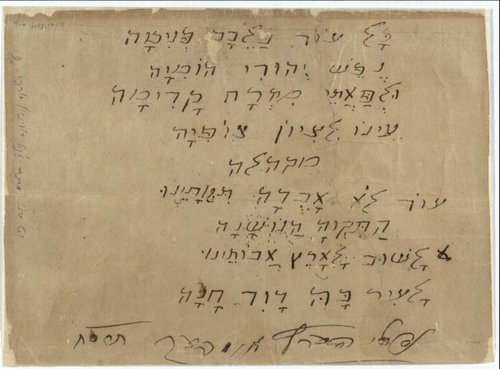 כָּל עוֹד בַּלֵּבָב פְּנִימָה
נֶפֶשׁ יְהוּדִי הוֹמִיָּה
וּלְפַאֲתֵי מִזְרָח קָדִימָה
עֵינוֹ לְצִיּוֹן צוֹפִיָּה
מקהלה
עוֹד לֹא אָבְדָה תִקְוָתֵינוּ
הַתִּקְוָה הַנּוֹשָׁנָה
לָשׁוּב לְאֶרֶץ אֲבוֹתֵינוּ
לְעִיר בָּהּ דָּוִד חָנָה
נפתלי הערץ אימבער תרסח